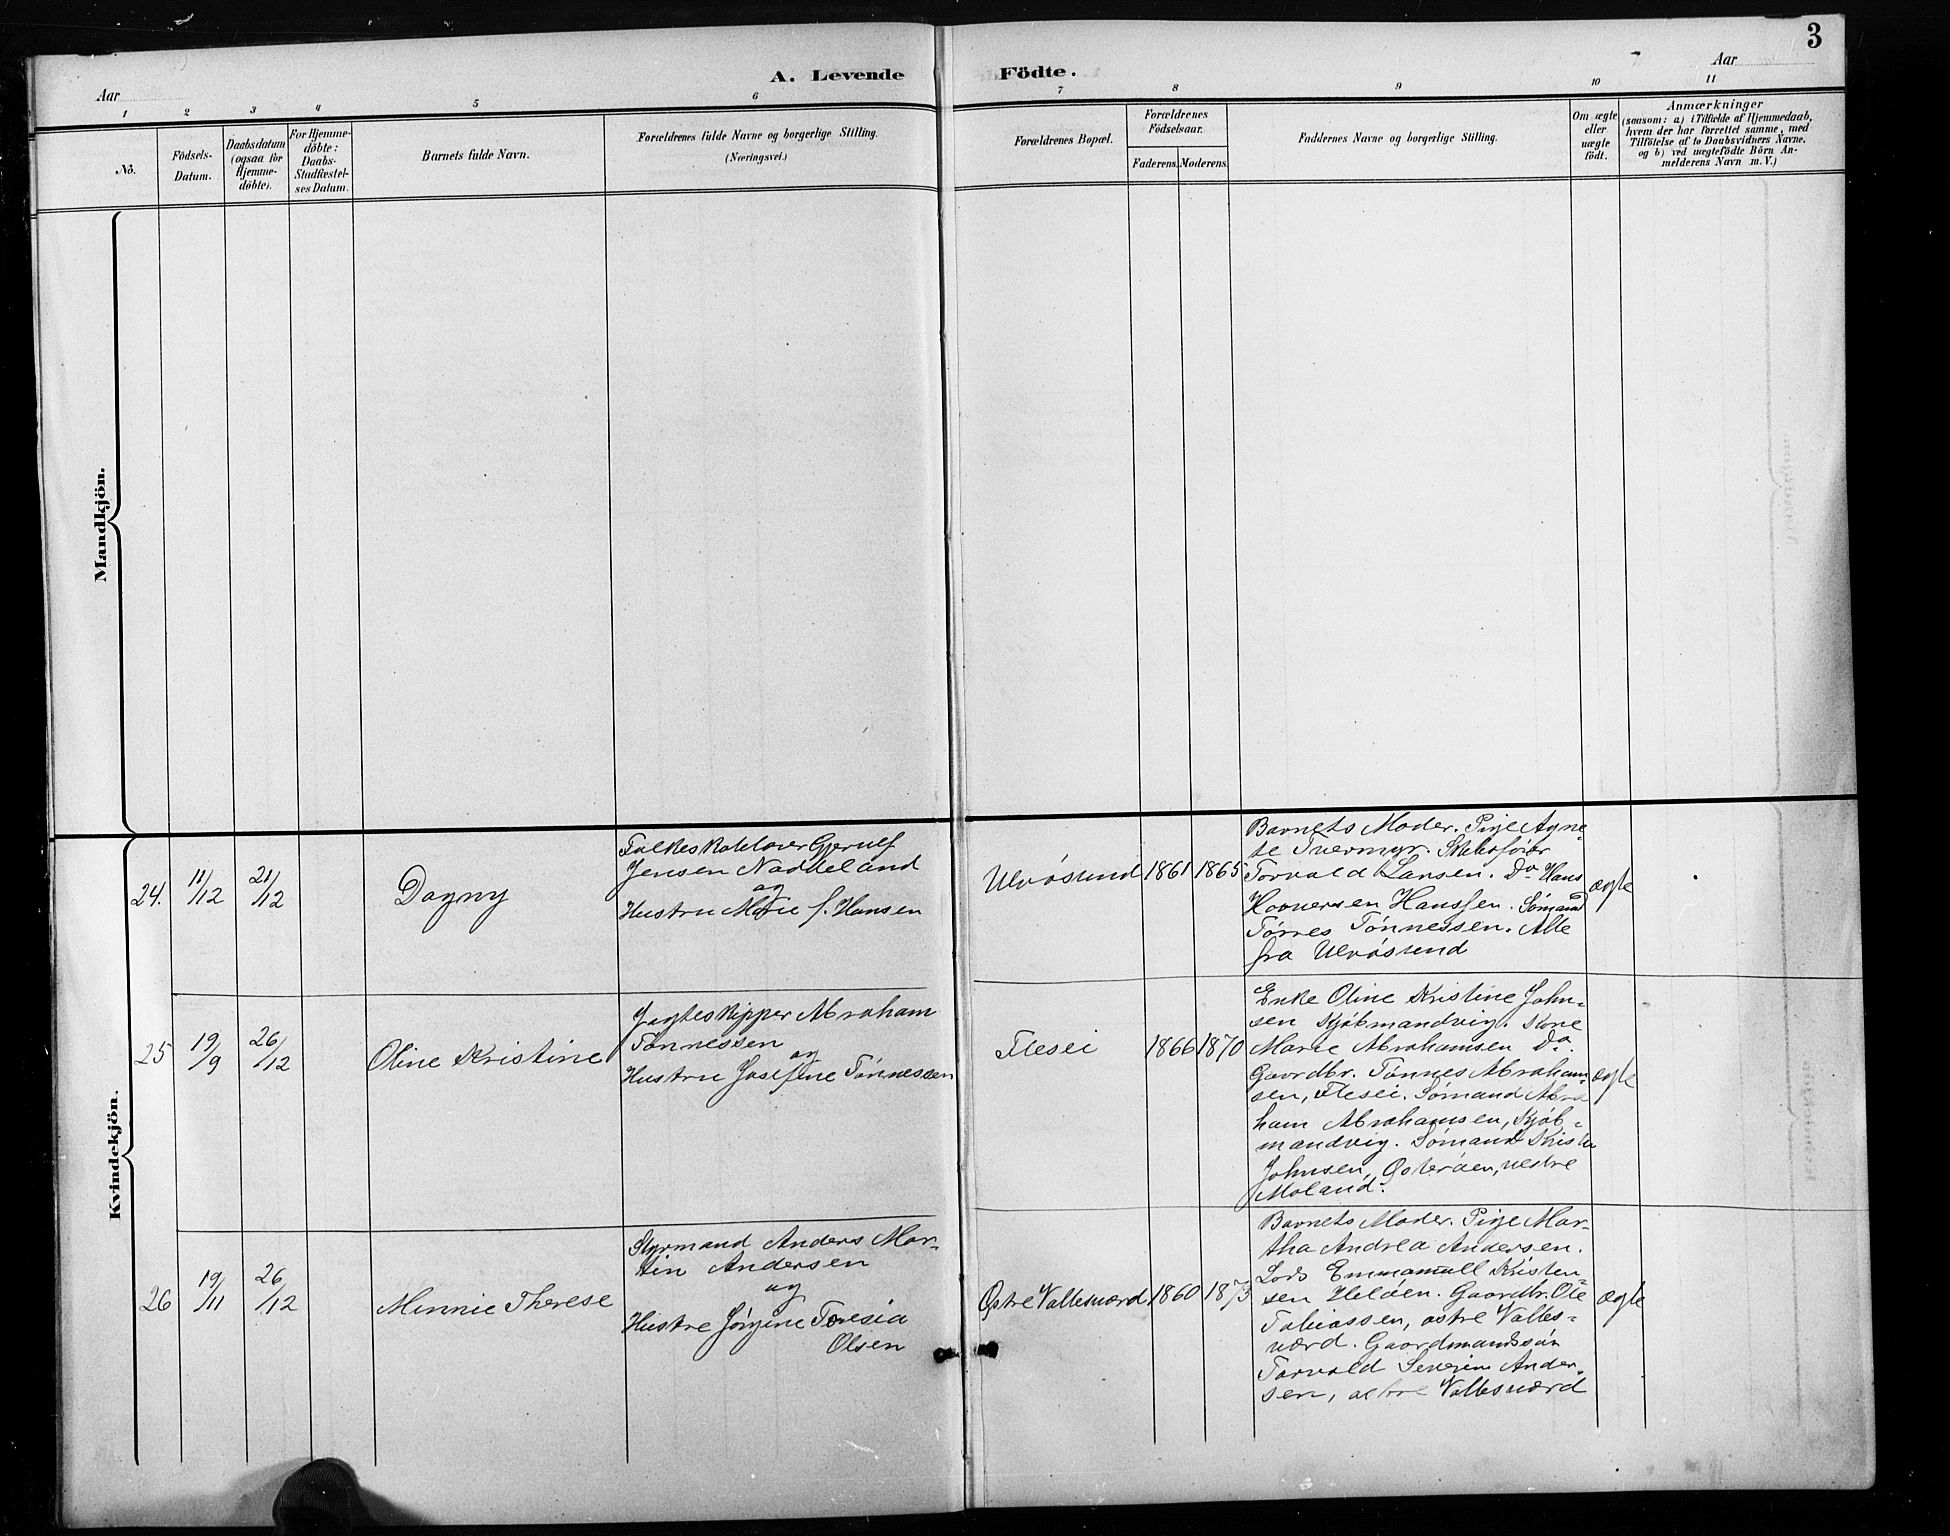 3
A. Levende Födte.
Aar
Aar
1 2 3 4 5 6 7 8 9 10 11
No.
Födsels-
Datum.
Daabsdatum
(ogsaa for
Hjemme-
döbte).
For Hjemme-
döbte:
Daabs-
Stadfæstel-
ses Datum.
Barnets fulde Navn.
Forældrenes fulde Navne og borgerlige Stilling.
(Næringsvei.)
Forældrenes Bopæl.
Forældrenes
Födselsaar.
Faderens. Moderens.
Faddernes Navne og borgerlige Stilling.
Om ægte
eller
uægte
födt.
Anmærkninger
(saasom: a) i Tilfælde af Hjemmedaab,
hvem der har forrettet samme, med
Tilföielse af to Daabsvidners Navne.
og b) ved uægtefödte Börn An-
melderens Navn m. V.)
Mandkjön.
Kvindekjön.
24.
11/12
21/12
Dagny
Jensen Naddeland
og
Hustru Marie f. Hansen
Ulvøsund
1861
1865
Barnets Moder. Pige Agne-
te Tvermyr.
Torvald Larsen. Do Hans
Hovversen Hanssen. Sømand
Tørres Tønnessen. Alle
fra Ulvøsund
ægte
25
19/9
26/12
Oline Kristine
Jagteskipper Abraham
Tønnessen
og
Hustru Josefine Tønnessen
Flesei
1866
1870
Enke Oline Kristine John-
sen Kjøbmandvig. Kone
Marie Abrahamsen Do.
Gaardbr. Tønnes Abraham-
sen, Flesei. Sømand Abra
ham Abrahamsen, Kjøb-
mandvig. Sømand Kristen
Johnsen, Osterøen, vestre
Moland.
ægte
26
19/11
26/12
Minnie Therese
Styrmand Anders Mar-
tin Andersen
og
Hustru Jørgine Teresia
Olsen
Østre Vallesværd
1860
1873
Barnets Moder. Pige Mar-
tha Andrea Andersen.
Lods Emmanuell Kristen-
sen Heløen. Gaardbr. Ole
Tobiassen, østre Valles-
værd. Gaardmandssøn
Torvald Severin Ander-
sen, østre Vallesværd
ægte